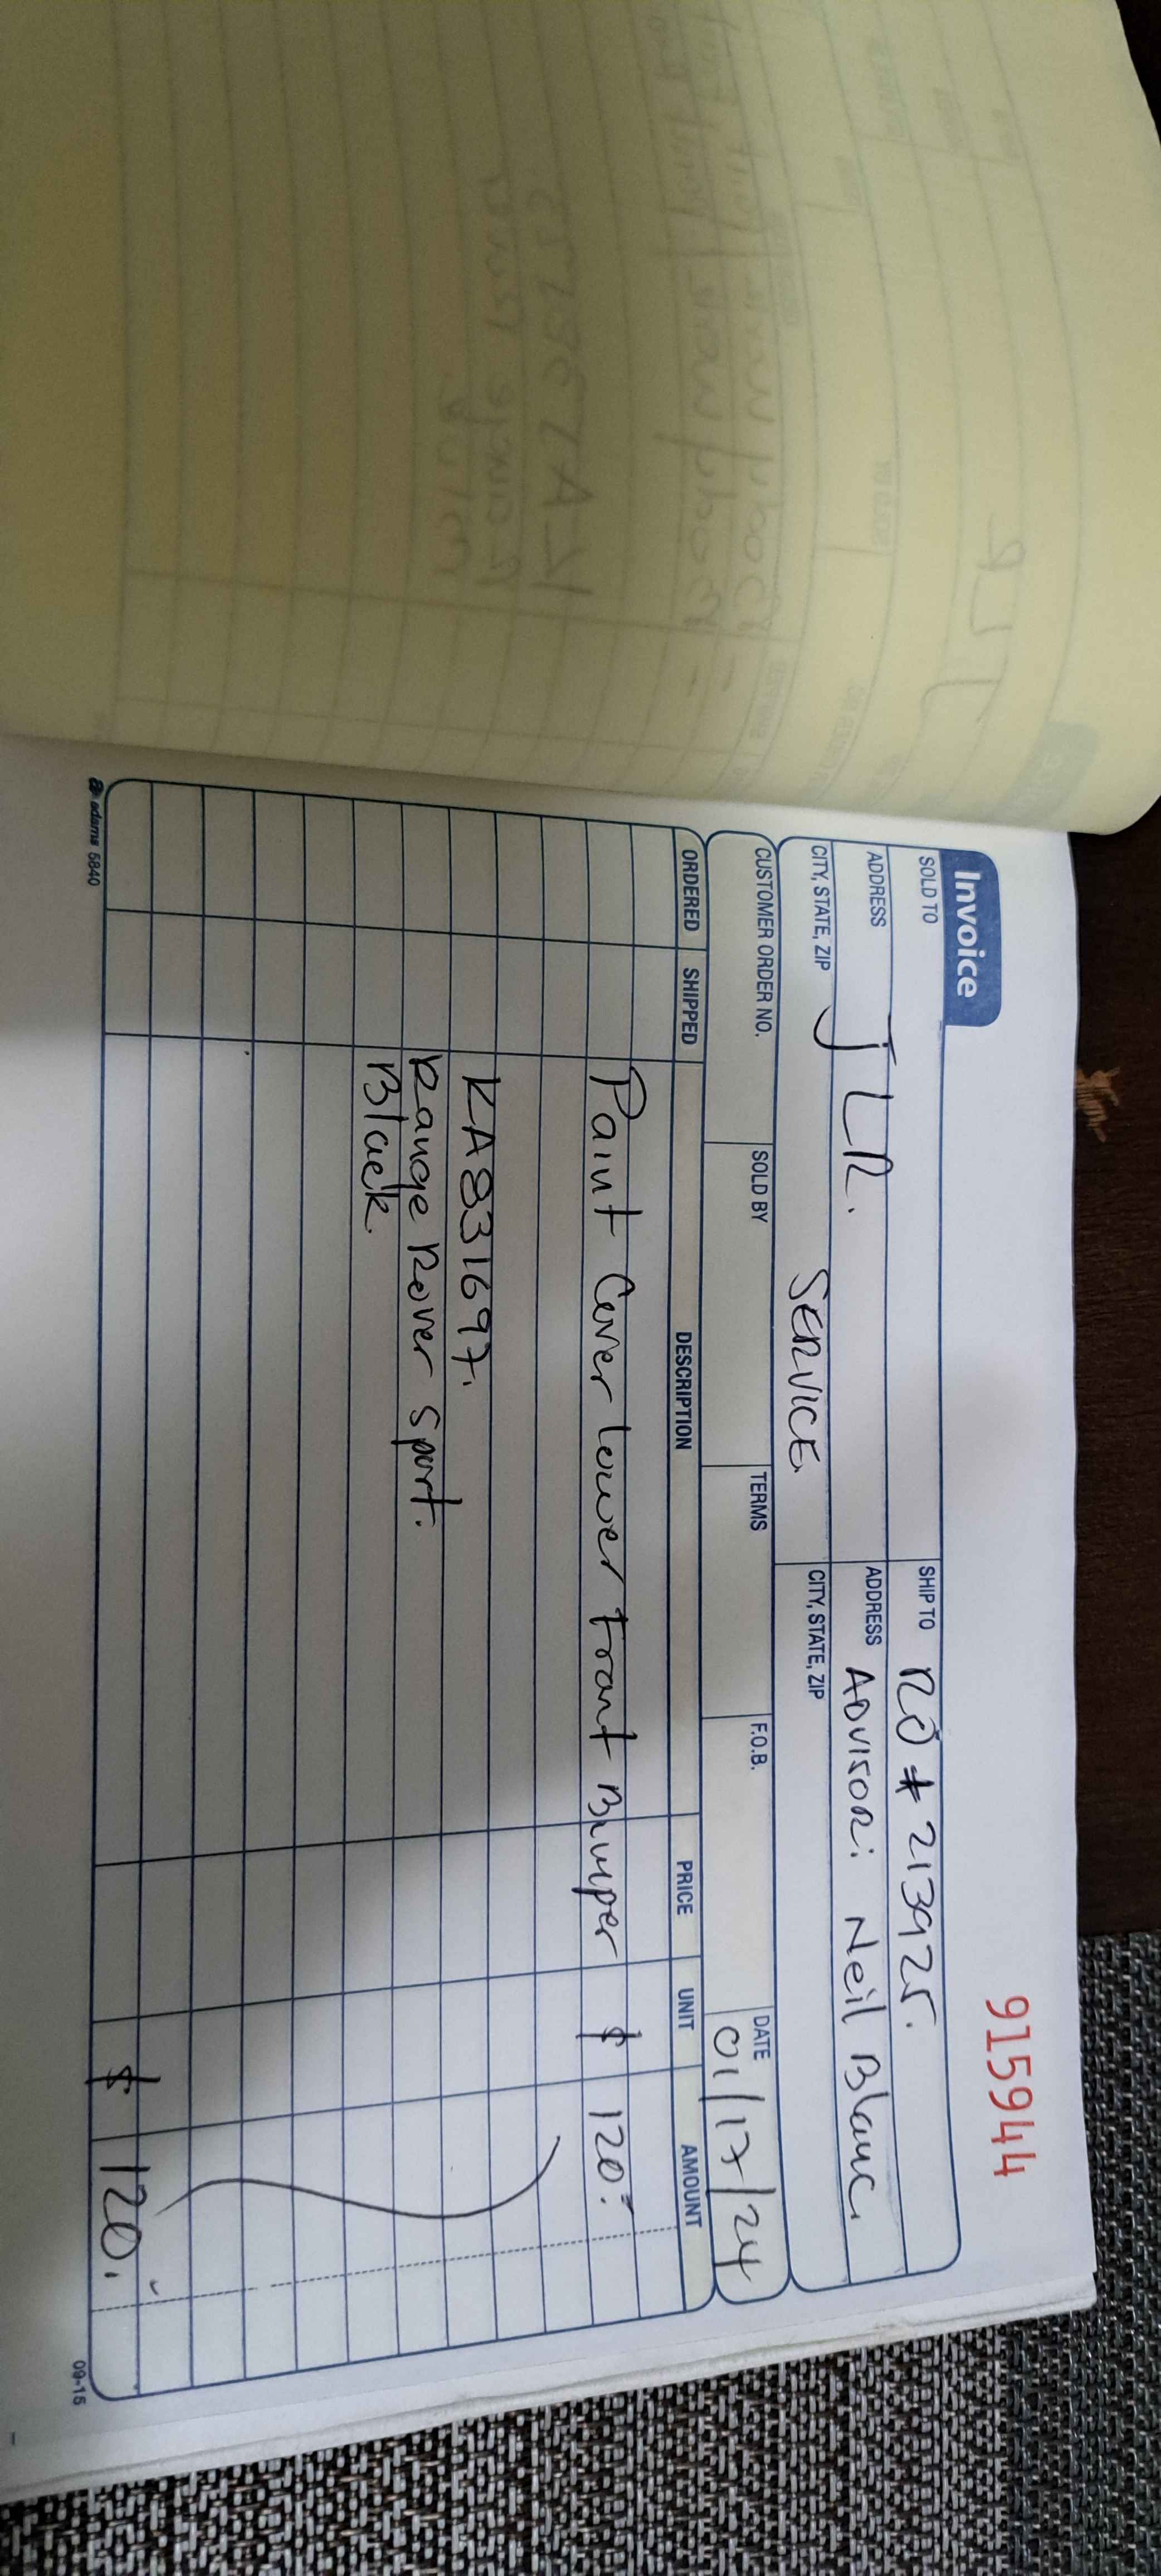 915944
Invoice
SOLD TO
SHIP TO RO # 213925.
ADDRESS JLR.
ADDRESS ADVISOR: Neil Blanc
CITY, STATE, ZIP SERVICE.
CITY, STATE, ZIP
CUSTOMER ORDER NO. SOLD BY TERMS F.O.B. DATE 01/17/24
ORDERED SHIPPED DESCRIPTION PRICE UNIT AMOUNT
Paint Cover lower Front Bumper $ 120.-
KA831697.
Range Rover Sport.
Black.
$ 120.-
adams 5840
09-15